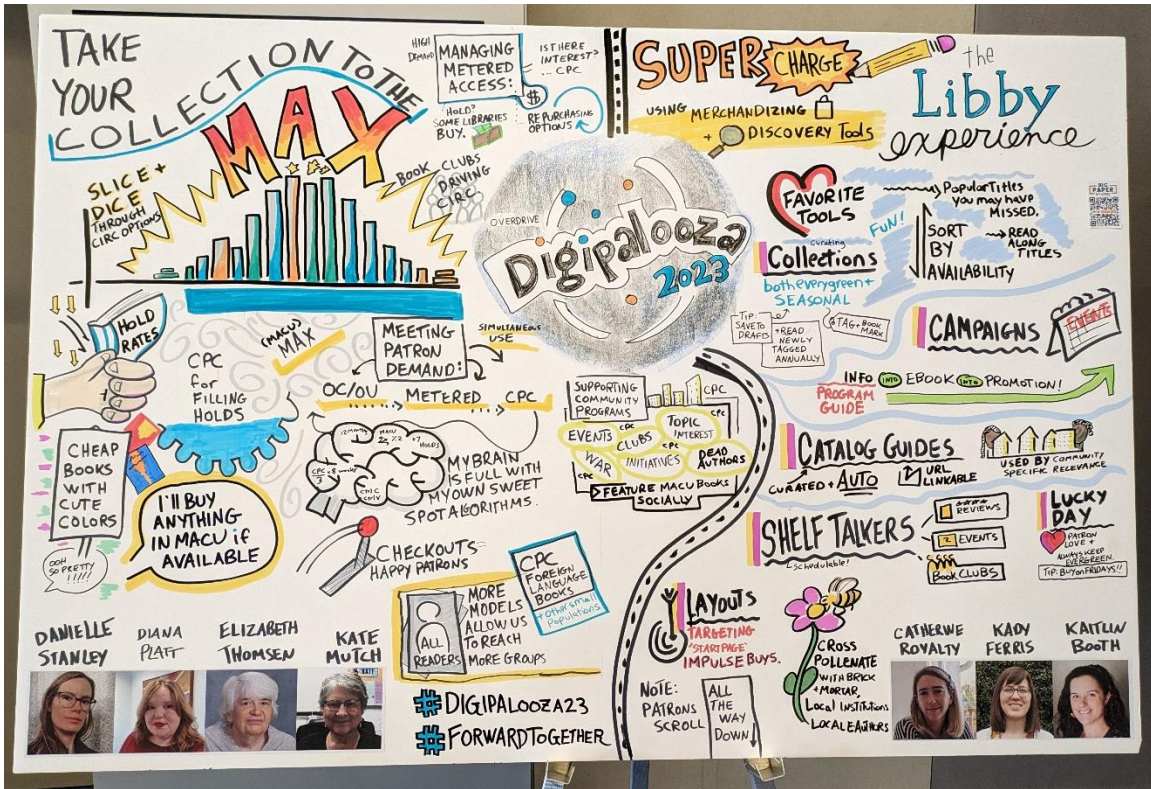 TAKE
YOUR
COLLECTION TO THE
MAX
SLICE +
DICE
THROUGH
CIRC OPTIONS
HIGH
DEMAND
MANAGING
METERED
ACCESS:
IS THERE
INTEREST?
... CPC
$
HOLD?
SOME LIBRARIES
BUY.
REPURCHASING
OPTIONS
BOOK CLUBS
DRIVING
CIRC
HOLD
RATES
CPC
for
FILLING
HOLDS
(MACUS)
MAX
MEETING
PATRON
DEMAND:
SIMULTANEOUS
USE
OC/OU
METERED
CPC
CHEAP
BOOKS
WITH
CUTE
COLORS
OOH
SO PRETTY
!!!!!
I'LL BUY
ANYTHING
IN MACU if
AVAILABLE
MACU
HOLDS
MY BRAIN
IS FULL WITH
MY OWN SWEET
SPOT ALGORITHMS.
CHECKOUTS
HAPPY PATRONS
ALL
READERS
MORE
MODELS
ALLOW US
TO REACH
MORE GROUPS
CPC
FOREIGN
LANGUAGE
BOOKS
+ other small
Populations
DANIELLE
STANLEY
DIANA
PLATT
ELIZABETH
THOMSEN
KATE
MUTCH
#DIGIPALOOZA23
#FORWARDTOGETHER
OVERDRIVE
Digipalooza
2023
SUPPORTING
COMMUNITY
PROGRAMS
CPC
EVENTS
CPC
CLUBS
TOPIC
INTEREST
CPC
WAR
CPC
INITIATIVES
DEAD
AUTHORS
FEATURE MACU BOOKS
SOCIALLY
SUPER
CHARGE
the
Libby
experience
USING MERCHANDIZING
+ DISCOVERY TOOLS
FAVORITE
TOOLS
FUN!
Popular Titles
you may have
MISSED.
SORT
BY
AVAILABILITY
READ
ALONG
TITLES
BIG
PAPER
curating
Collections
both everygreen +
SEASONAL
TIP:
SAVE TO
DRAFTS
+ READ
NEWLY
TAGGED
ANNUALLY
TAG + BOOK
MARK
CAMPAIGNS
EVENTS
INFO INTO EBOOK INTO PROMOTION!
PROGRAM
GUIDE
CATALOG GUIDES
CURATED + AUTO
URL
LINKABLE
USED BY COMMUNITY
SPECIFIC RELEVANCE
SHELF TALKERS
schedulable!
REVIEWS
EVENTS
Book CLUBS
LUCKY
DAY
PATRON
LOVE +
ALWAYS KEEP
EVERGREEN.
TIP: BUY on FRIDAYS!!
LAYOUTS
TARGETING
"STARTPAGE"
IMPULSE BUYS.
NOTE:
PATRONS
SCROLL
ALL
THE
WAY
DOWN
CROSS
POLLENATE
WITH BRICK
+ MORTAR,
Local Institutions
LOCAL AUTHORS
CATHERINE
ROYALTY
KADY
FERRIS
KAITLIN
BOOTH